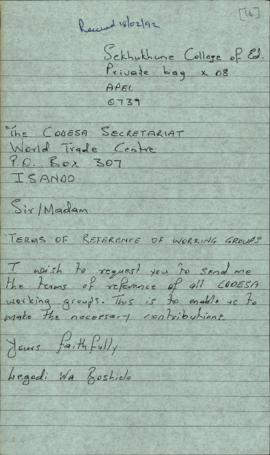 Received 18/02/92
[16]
Sekhukhune College of Ed.
Private bag x 08
APEL
0739
The CODESA SECRETARIAT
World Trade Centre
P.O. Box 307
ISANDO
Sir/Madam
TERMS OF REFERENCE OF WORKING GROUPS
I wish to request you to send me
the terms of reference of all CODESA
working groups. This is to enable us to
make the necessary contributions.
Yours faithfully
Legodi Wa Boshielo